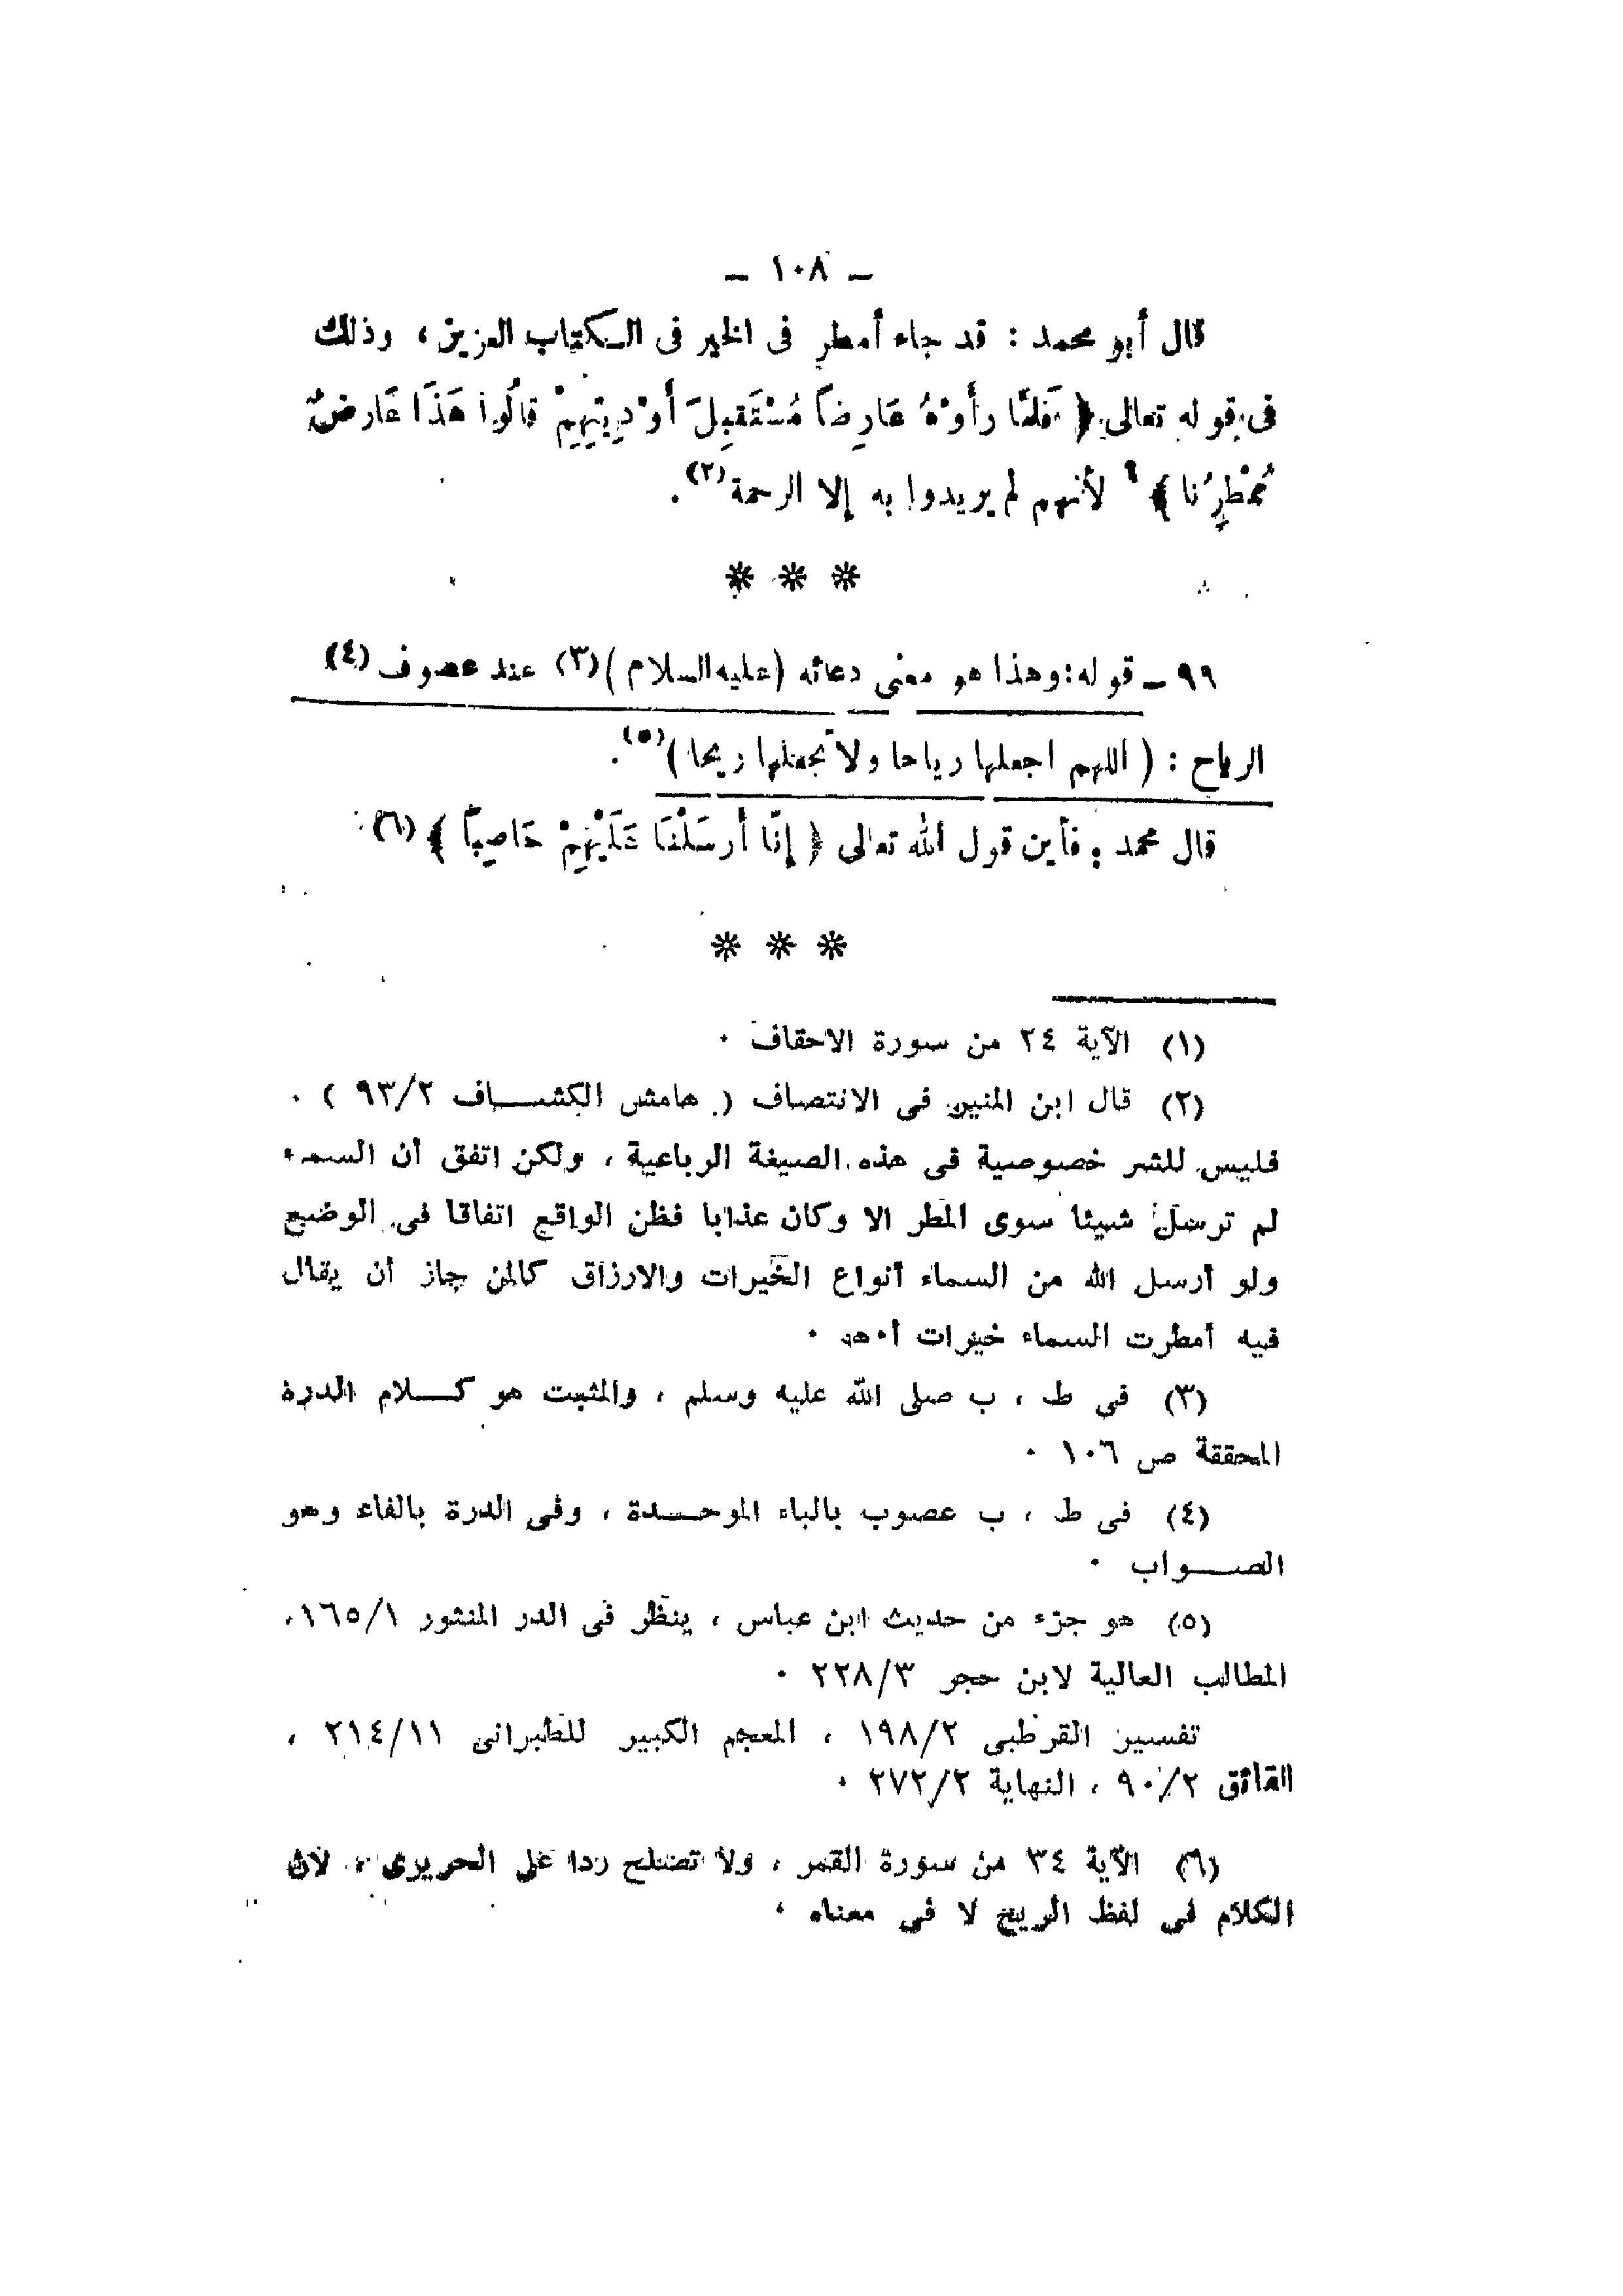 ـ ١٠٨ ـ
قال أبو محمد : قد جاء أمطر فى الخير فى الكتاب العزيز ، وذلك
فى قوله تعالى ﴿ فَلمَّا رأَوْهُ عَارِضاً مُسْتَقبِلَ أَوْدِيتِهِمْ قالُوا هَذَا عَارضٌ
مُمْطِرُنا ﴾ لأنهم لم يريدوا به إلا الرحمة (٢) .
* * *
٩٩ ـ قوله : وهذا هو معنى دعائه (عليه السلام) (٣) عند عصوف (٤)
الرياح : ( اللهم اجعلها رياحا ولا تجعلها ريحا ) (٥) .
قال محمد : فأين قول الله تعالى ﴿ إِنَّا أَرسَلْنَا عَلَيْهِمْ حَاصِباً ﴾ (٦)
* * *
(١) الآية ٢٤ من سورة الاحقاف .
(٢) قال ابن المنير فى الانتصاف ( هامش الكشاف ٩٣/٢ ) .
فليس للشر خصوصية فى هذه الصيغة الرباعية ، ولكن اتفق أن السماء
لم ترسل شيئا سوى المطر الا وكان عذابا فظن الواقع اتفاقا فى الوضع
ولو أرسل الله من السماء أنواع الخيرات والارزاق كالمن جاز أن يقال
فيه أمطرت السماء خيرات أ٠هـ .
(٣) فى ط ، ب صلى الله عليه وسلم ، والمثبت هو كلام الدرة
المحققة ص ١٠٦ .
(٤) فى ط ، ب عصوب بالباء الموحدة ، وفى الدرة بالفاء وهو
الصواب .
(٥) هو جزء من حديث ابن عباس ، ينظر فى الدر المنثور ١٦٥/١،
المطالب العالية لابن حجر ٢٢٨/٣ .
تفسير القرطبى ١٩٨/٢ ، المعجم الكبير للطبرانى ٢١٤/١١ ،
الفائق ٩٠/٢ ، النهاية ٢٧٢/٢ .
(٦) الآية ٣٤ من سورة القمر ، ولا تصلح ردا على الحريرى ، لان
الكلام فى لفظ الريح لا فى معناه .